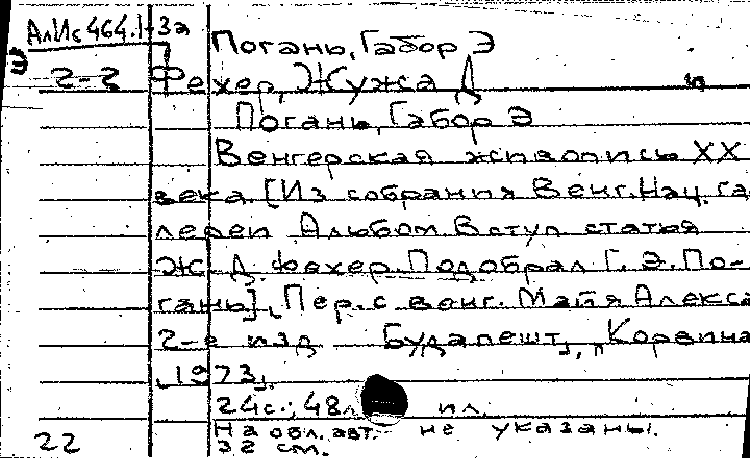 АлИс464.1-3а
Погань, Габор Э
2-2 Фехер, Жужа Д
Погань, Габор Э
Венгерская живопись XX
века. [Из собрания Венг. Нац. га
лереи Альбом. Вступ статья
Ж. Д. Фехер. Подобрал Г. Э. По-
гань], Пер. с венг. Майя Алекса
2-е изд Будапешт, "Корвина
1973,
24с.; 48л ил.
На обл. авт. не указаны.
22 32 см.